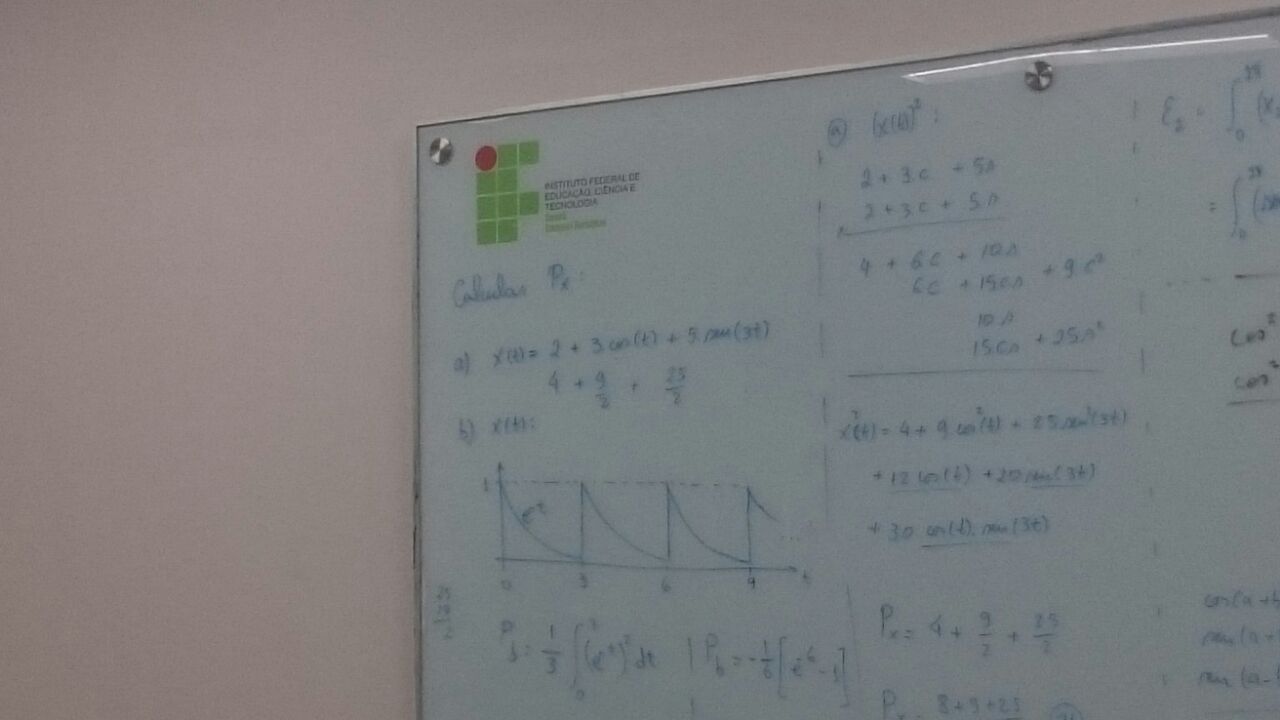 INSTITUTO FEDERAL DE
EDUCAÇÃO, CIÊNCIA E
TECNOLOGIA
Calcular Pₓ:
a) x(t) = 2 + 3 cos(t) + 5 sen(3t)
4 + 9/2 + 25/2
b) x(t):
1
0 3 6 9 t
P_b = 1/3 ∫₀³ (e⁻ᵗ)² dt | P_b = -1/6 [e⁻⁶ - 1]
a) (x(t))² :
2 + 3c + 5s
2 + 3c + 5s
4 + 6c + 10s
6c + 15cs + 9c²
10s
15cs + 25s²
x²(t) = 4 + 9 cos²(t) + 25 sen²(3t)
+ 12 cos(t) + 20 sen(3t)
+ 30 cos(t). sen(3t)
Pₓ = 4 + 9/2 + 25/2
Pₓ = 8+9+25
E₂ = ∫₀
= ∫₀
cos²
cos²
cos(a+b
sen(a+
sen(a-b